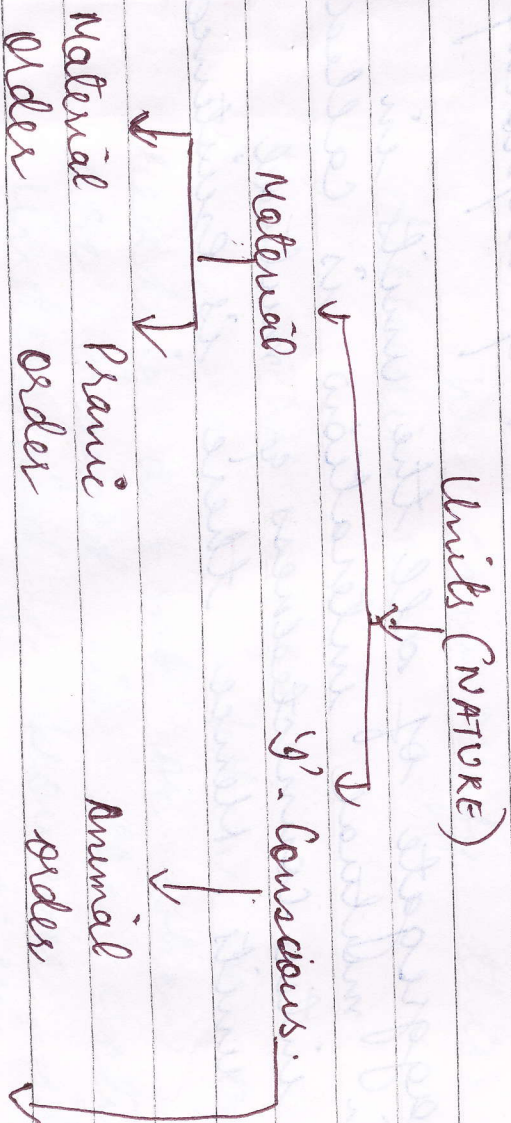 Units (NATURE)
Material
'I' - Conscious.
Material
order
Pranic
order
Animal
order